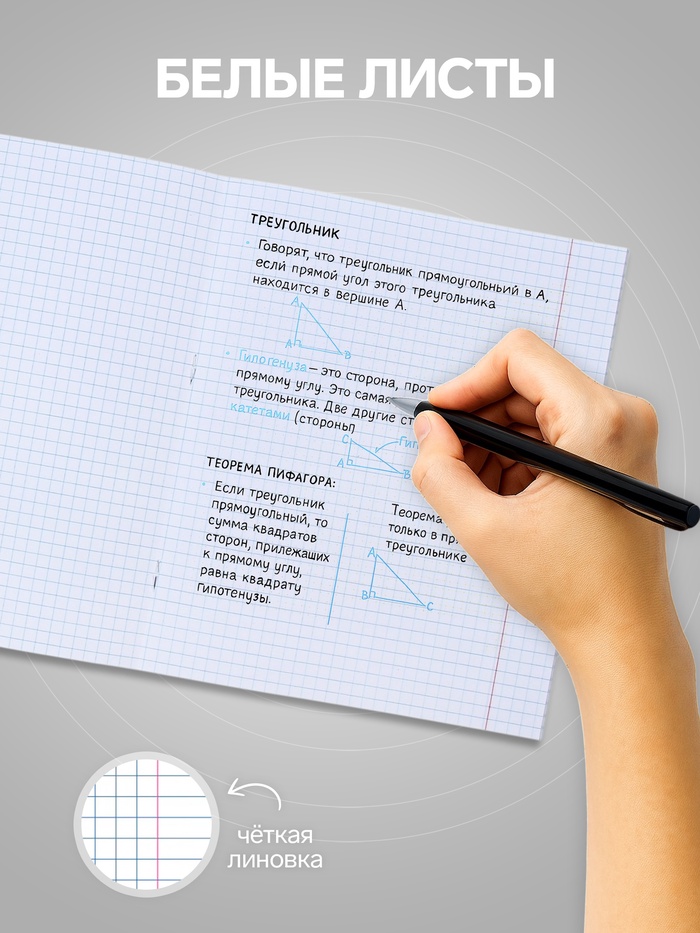 БЕЛЫЕ ЛИСТЫ
ТРЕУГОЛЬНИК
Говорят, что треугольник прямоугольный в А,
если прямой угол этого треугольника
находится в вершине А.
А
А В
Гипотенуза — это сторона, прот
прямому углу. Это самая
треугольника. Две другие ст
катетами (стороны
С Гип
А В
ТЕОРЕМА ПИФАГОРА:
Если треугольник
прямоугольный, то
сумма квадратов
сторон, прилежащих
к прямому углу,
равна квадрату
гипотенузы.
Теорема
только в пр
треугольнике
А
В С
чёткая
линовка